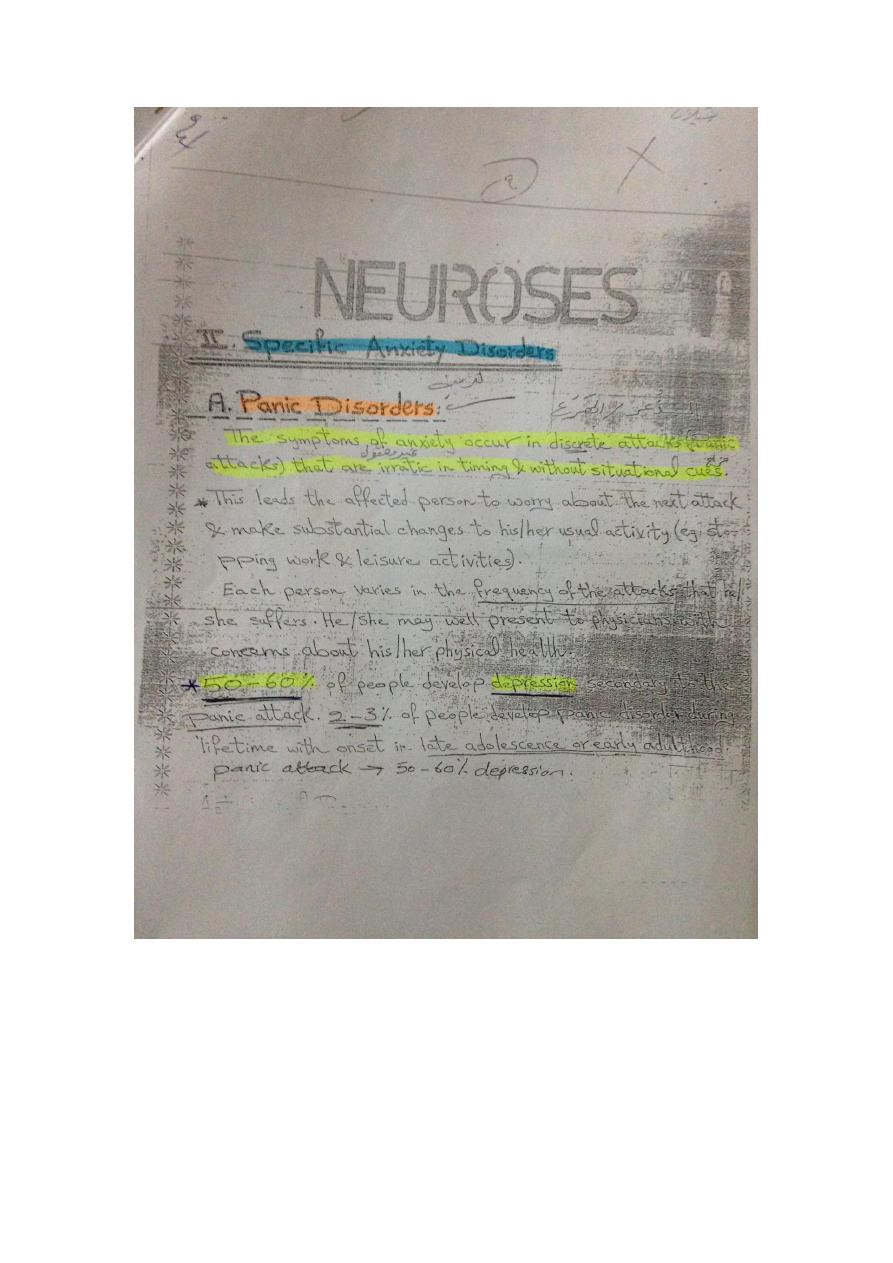 NEUROSES
II. Specific Anxiety Disorders
تعريف
A. Panic Disorders:
The symptoms of anxiety occur in discrete attacks (panic
غير معقول
attacks) that are irratic in timing & without situational cues.
* This leads the affected person to worry about the next attack
& make substantial changes to his/her usual activity (eg: sto-
pping work & leisure activities).
Each person varies in the frequency of the attacks that he/
she suffers. He/she may well present to physicians with
concerns about his/her physical health.
* 50-60% of people develop depression secondary to the
panic attack. 2-3% of people develop panic disorder during
lifetime with onset in late adolescence or early adulthood.
panic attack → 50-60% depression.